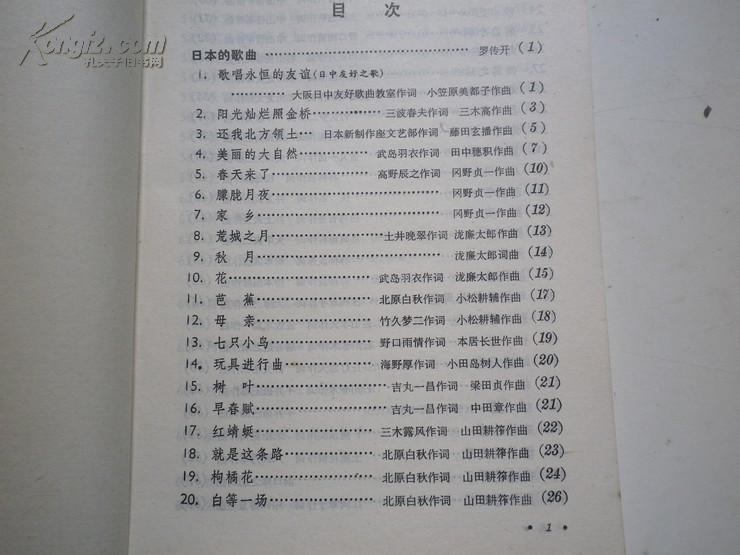 目 次
日本的歌曲 …… 罗传开 (1)
1. 歌唱永恒的友谊(日中友好之歌)
…… 大阪日中友好歌曲教室作词 小笠原美都子作曲 (1)
2. 阳光灿烂照金桥…… 三波春夫作词 三木高作曲 (3)
3. 还我北方领土… 日本新制作座文艺部作词 藤田玄播作曲 (5)
4. 美丽的大自然…… 武岛羽衣作词 田中穗积作曲 (7)
5. 春天来了…… 高野辰之作词 冈野贞一作曲 (10)
6. 朦胧月夜…… 冈野贞一作曲 (11)
7. 家 乡…… 冈野贞一作曲 (12)
8. 荒城之月…… 土井晚翠作词 泷廉太郎作曲 (13)
9. 秋 月…… 泷廉太郎词曲 (14)
10. 花…… 武岛羽衣作词 泷廉太郎作曲 (15)
11. 芭 蕉…… 北原白秋作词 小松耕辅作曲 (17)
12. 母 亲…… 竹久梦二作词 小松耕辅作曲 (18)
13. 七只小鸟…… 野口雨情作词 本居长世作曲 (19)
14. 玩具进行曲…… 海野厚作词 小田岛树人作曲 (20)
15. 树 叶…… 吉丸一昌作词 梁田贞作曲 (21)
16. 早春赋…… 吉丸一昌作词 中田章作曲 (21)
17. 红蜻蜓…… 三木露风作词 山田耕筰作曲 (22)
18. 就是这条路…… 北原白秋作词 山田耕筰作曲 (23)
19. 枸橘花…… 北原白秋作词 山田耕筰作曲 (24)
20. 白等一场…… 北原白秋作词 山田耕筰作曲 (26)
• 1 •
Kongfz.com
孔夫子旧书网